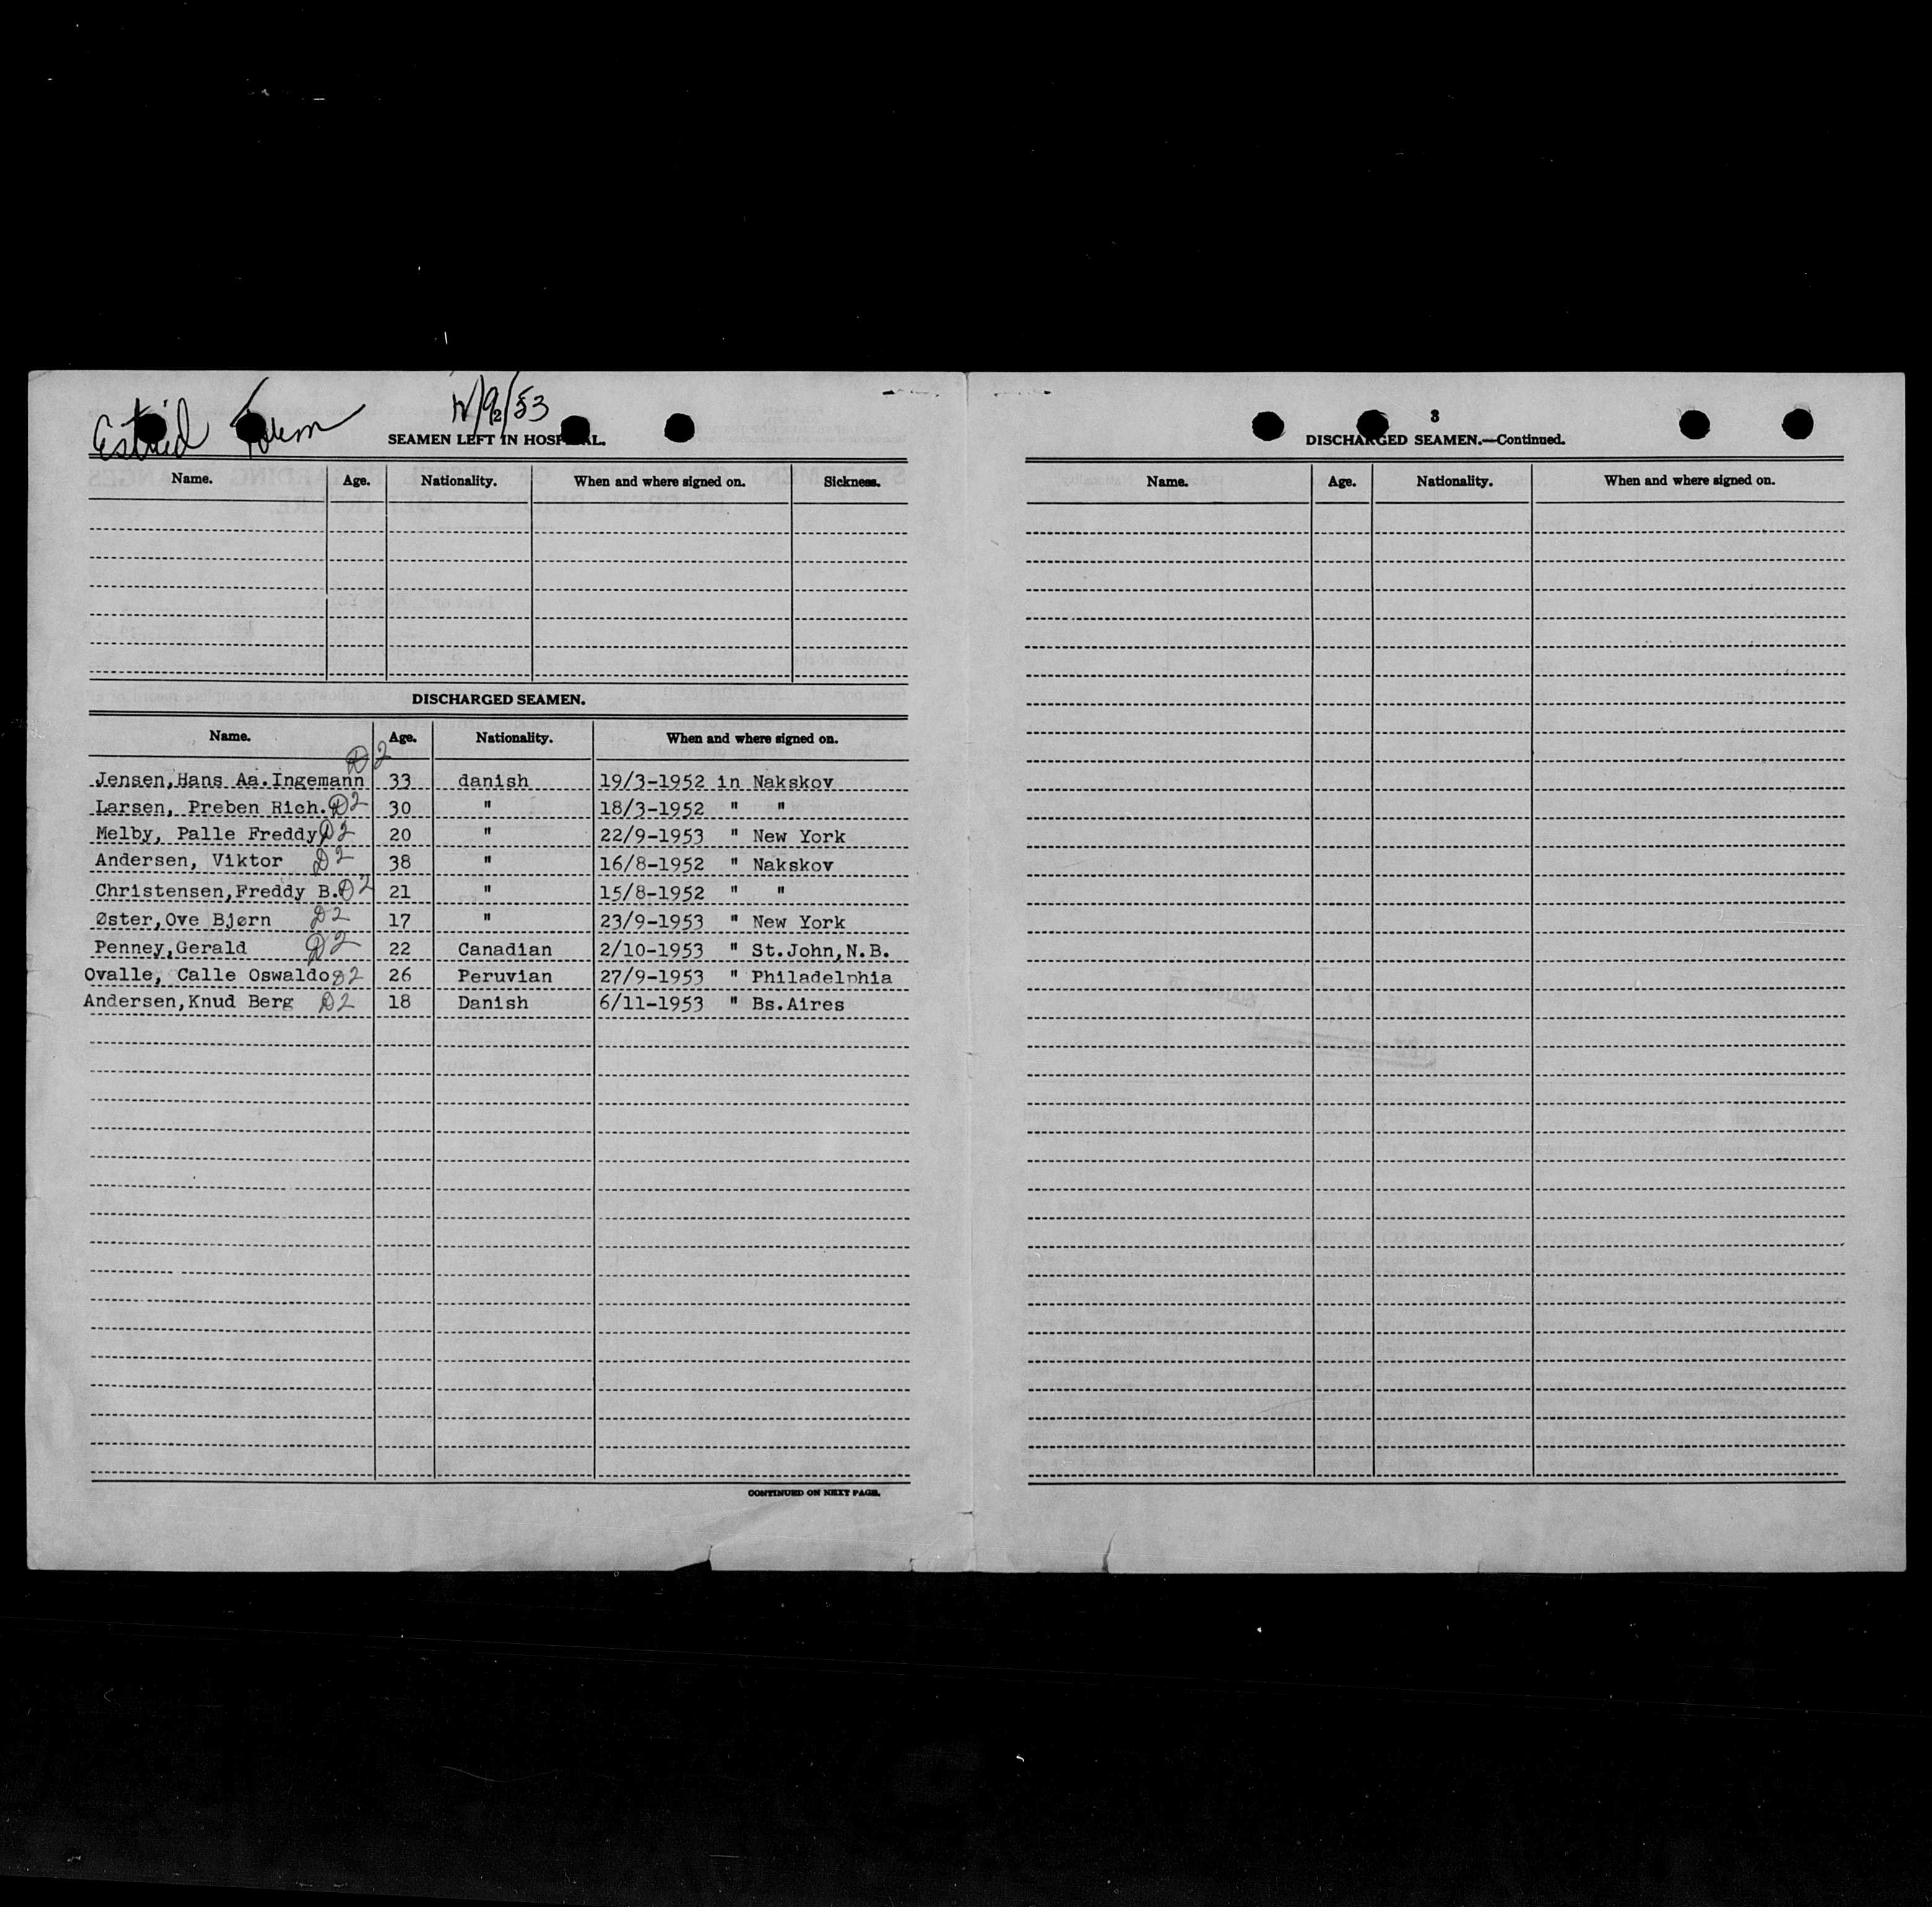 Estrid Torm 12/9/53
SEAMEN LEFT IN HOSPITAL.
Name. Age. Nationality. When and where signed on. Sickness.
DISCHARGED SEAMEN.
Name. Age. Nationality. When and where signed on.
D2
Jensen,Hans Aa.Ingemann 33 danish 19/3-1952 in Nakskov
Larsen, Preben Rich. D2 30 " 18/3-1952 " "
Melby, Palle Freddy D2 20 " 22/9-1953 " New York
Andersen, Viktor D2 38 " 16/8-1952 " Nakskov
Christensen,Freddy B. D2 21 " 15/8-1952 " "
Øster,Ove Bjørn D2 17 " 23/9-1953 " New York
Penney,Gerald D2 22 Canadian 2/10-1953 " St.John,N.B.
Ovalle, Calle Oswaldo D2 26 Peruvian 27/9-1953 " Philadelphia
Andersen,Knud Berg D2 18 Danish 6/11-1953 " Bs.Aires
CONTINUED ON NEXT PAGE.
3
DISCHARGED SEAMEN.—Continued.
Name. Age. Nationality. When and where signed on.